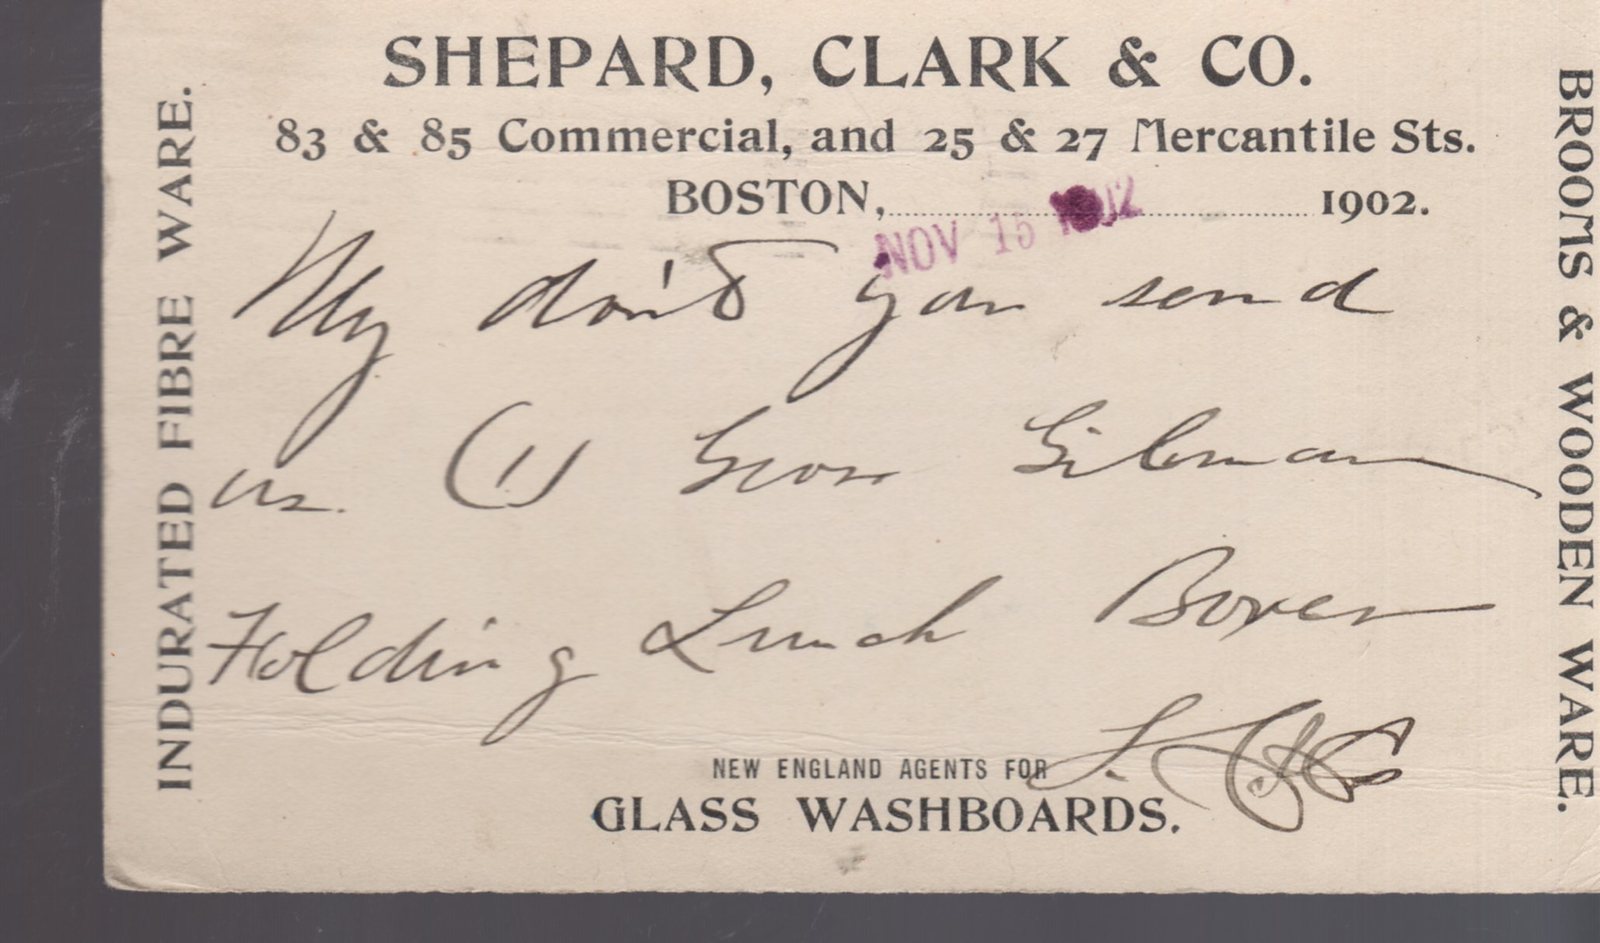 SHEPARD, CLARK & CO.
83 & 85 Commercial, and 25 & 27 Mercantile Sts.
BOSTON, 1902.
NOV 15 1902
INDURATED FIBRE WARE.
BROOMS & WOODEN WARE.
Why don't you send
us. (1) Gross
Folding Lunch Boxes
S. C. & Co
NEW ENGLAND AGENTS FOR
GLASS WASHBOARDS.